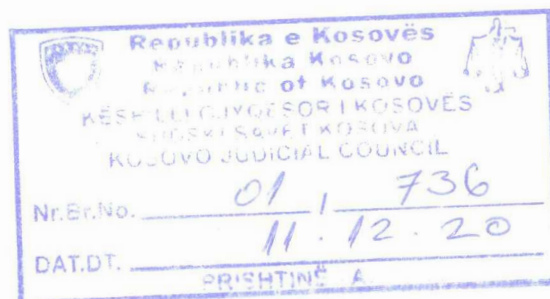 Republika e Kosovës
Republika Kosovo
Republic of Kosovo
KËSHILLI GJYQËSOR I KOSOVËS
SUDSKI SAVET KOSOVA
KOSOVO JUDICIAL COUNCIL
Nr.Br.No. 01 / 736
DAT.DT. 11.12.20
PRISHTINË A